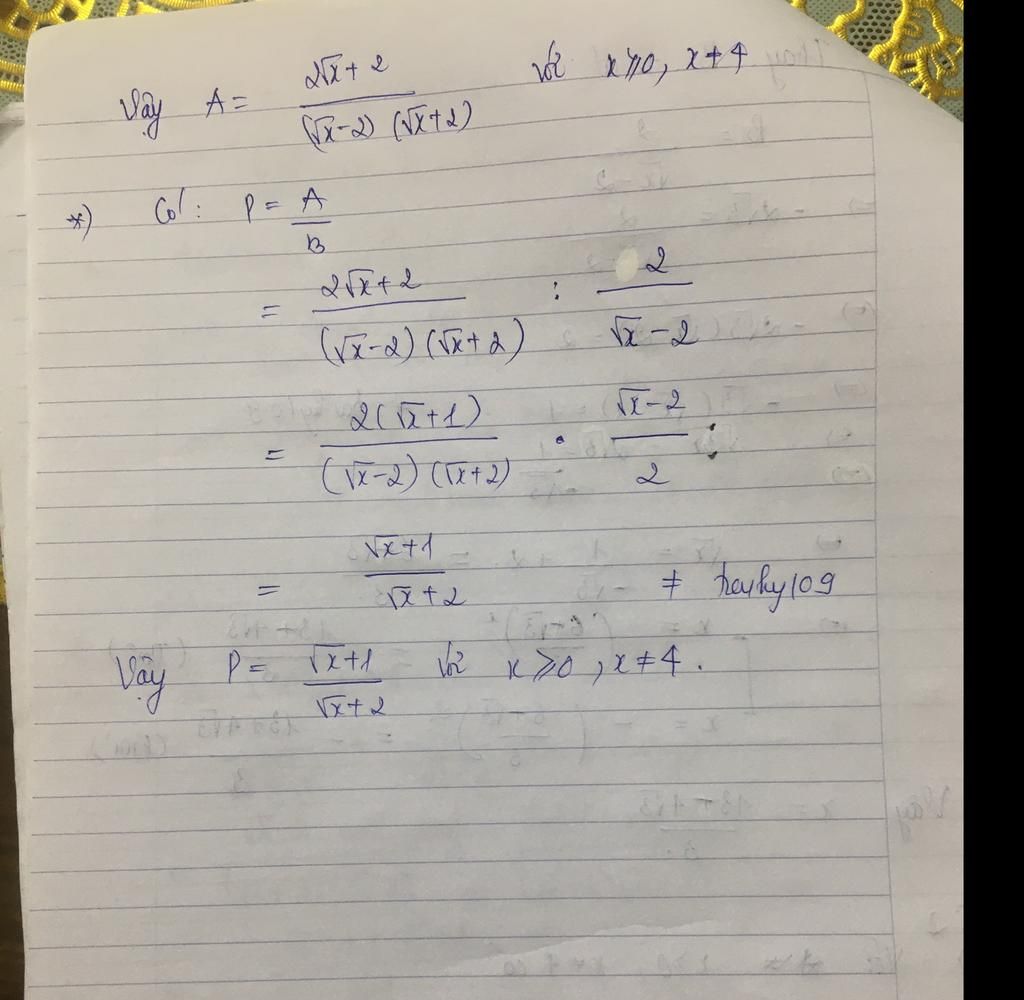 Vậy A = (2√x + 2) / ((√x - 2) (√x + 2)) với x ≥ 0, x ≠ 4
*) Có: P = A / B
= (2√x + 2) / ((√x - 2) (√x + 2)) : 2 / (√x - 2)
= 2(√x + 1) / ((√x - 2) (√x + 2)) · (√x - 2) / 2
= (√x + 1) / (√x + 2)
Vậy P = (√x + 1) / (√x + 2) với x ≥ 0, x ≠ 4.